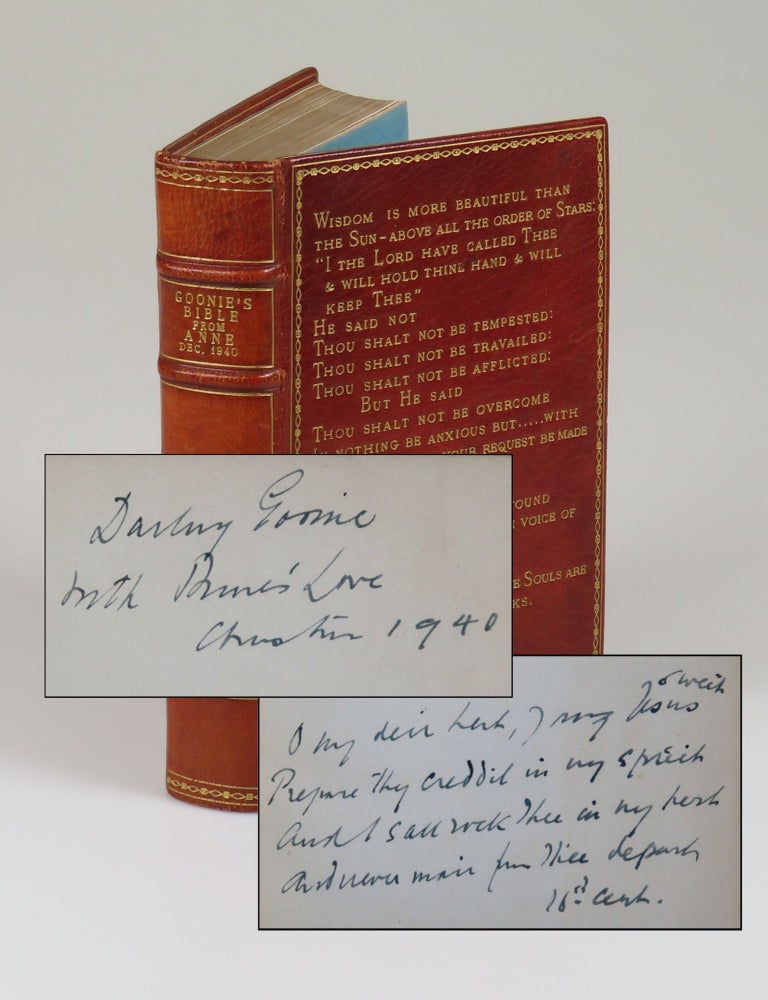 GOONIE'S
BIBLE
FROM
ANNE
DEC, 1940
WISDOM IS MORE BEAUTIFUL THAN
THE SUN – ABOVE ALL THE ORDER OF STARS:
"I THE LORD HAVE CALLED THEE
& WILL HOLD THINE HAND & WILL
KEEP THEE"
HE SAID NOT
THOU SHALT NOT BE TEMPESTED:
THOU SHALT NOT BE TRAVAILED:
THOU SHALT NOT BE AFFLICTED:
BUT HE SAID
THOU SHALT NOT BE OVERCOME
IN NOTHING BE ANXIOUS BUT.....WITH
YOUR REQUEST BE MADE
OUND
VOICE OF
E SOULS ARE
KS.
Darling Goonie
with Anne's Love
Christmas 1940
O my deir hert, young Jesus sweit
Prepare thy creddil in my spreit
And I sall rock Thee in my hert
And never mair from Thee depart
16 cent.